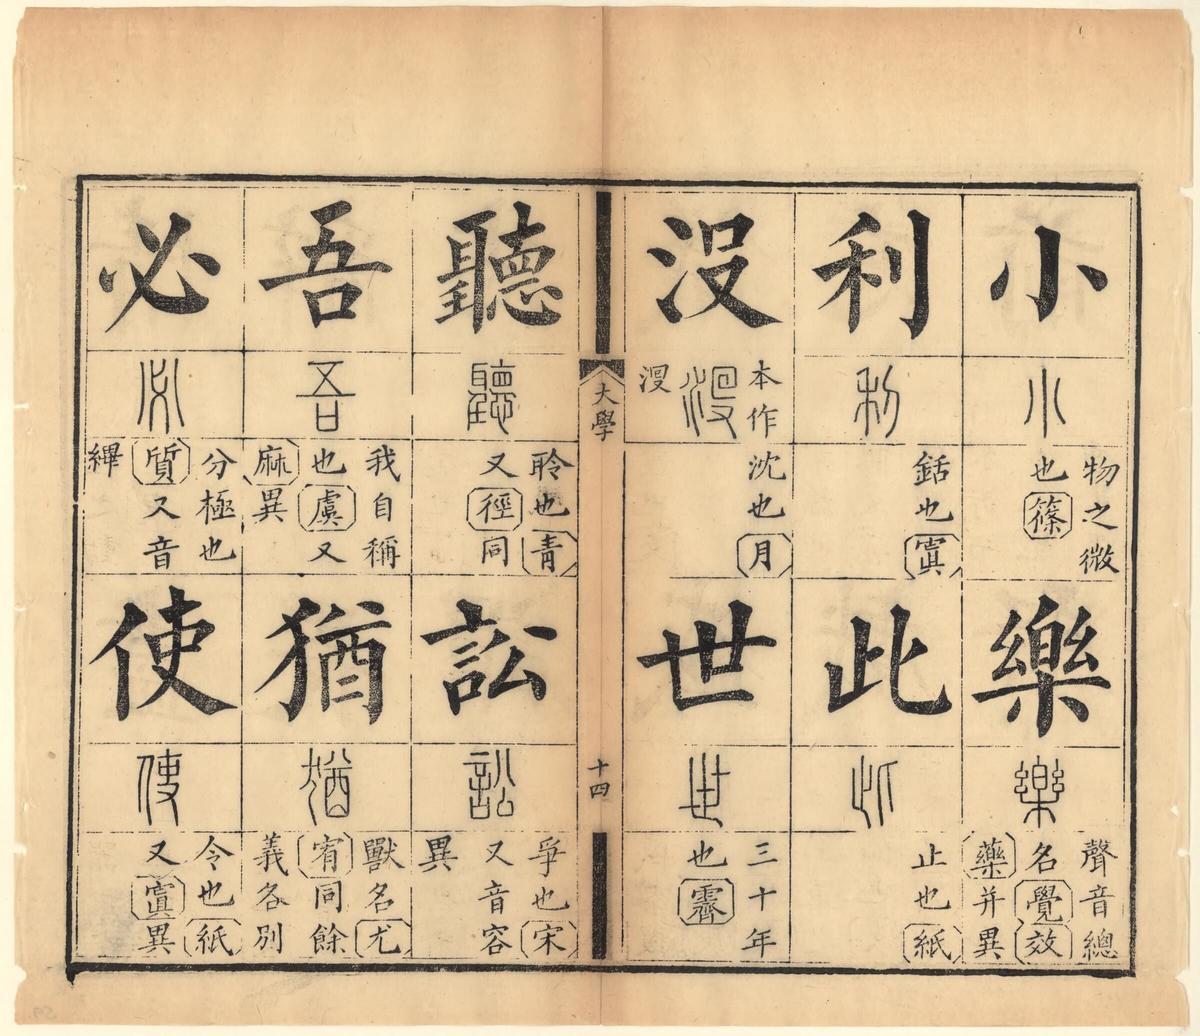 小
小
物之微
也篠
樂
樂
聲音總
名覺效
藥并異
利
利
銛也寘
此
此
止也紙
沒
本作
沒
沈也月
世
世
三十年
也霽
大學
十四
聽
聽
聆也青
又徑同
訟
訟
爭也宋
又音容
異
吾
吾
我自稱
也虞又
麻異
猶
猶
獸名尤
宥同餘
義各別
必
必
分極也
質又音
縪
使
使
令也紙
又寘異